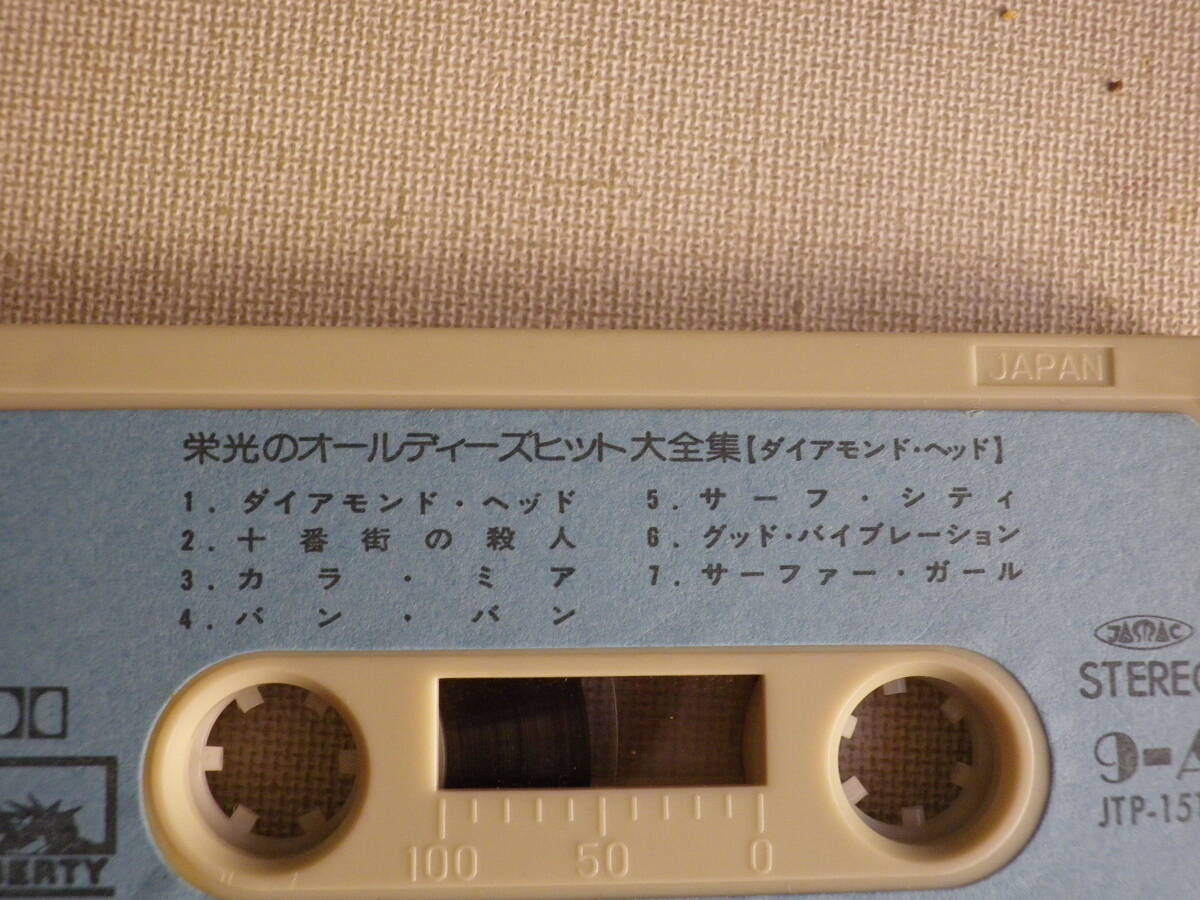 JAPAN
栄光のオールディーズヒット大全集【ダイアモンド・ヘッド】
1. ダイアモンド・ヘッド
2. 十番街の殺人
3. カラ・ミア
4. バン・バン
5. サーフ・シティ
6. グッド・バイブレーション
7. サーファー・ガール
JAMAC
STEREO
9-A
JTP-151
BERTY
100 50 0